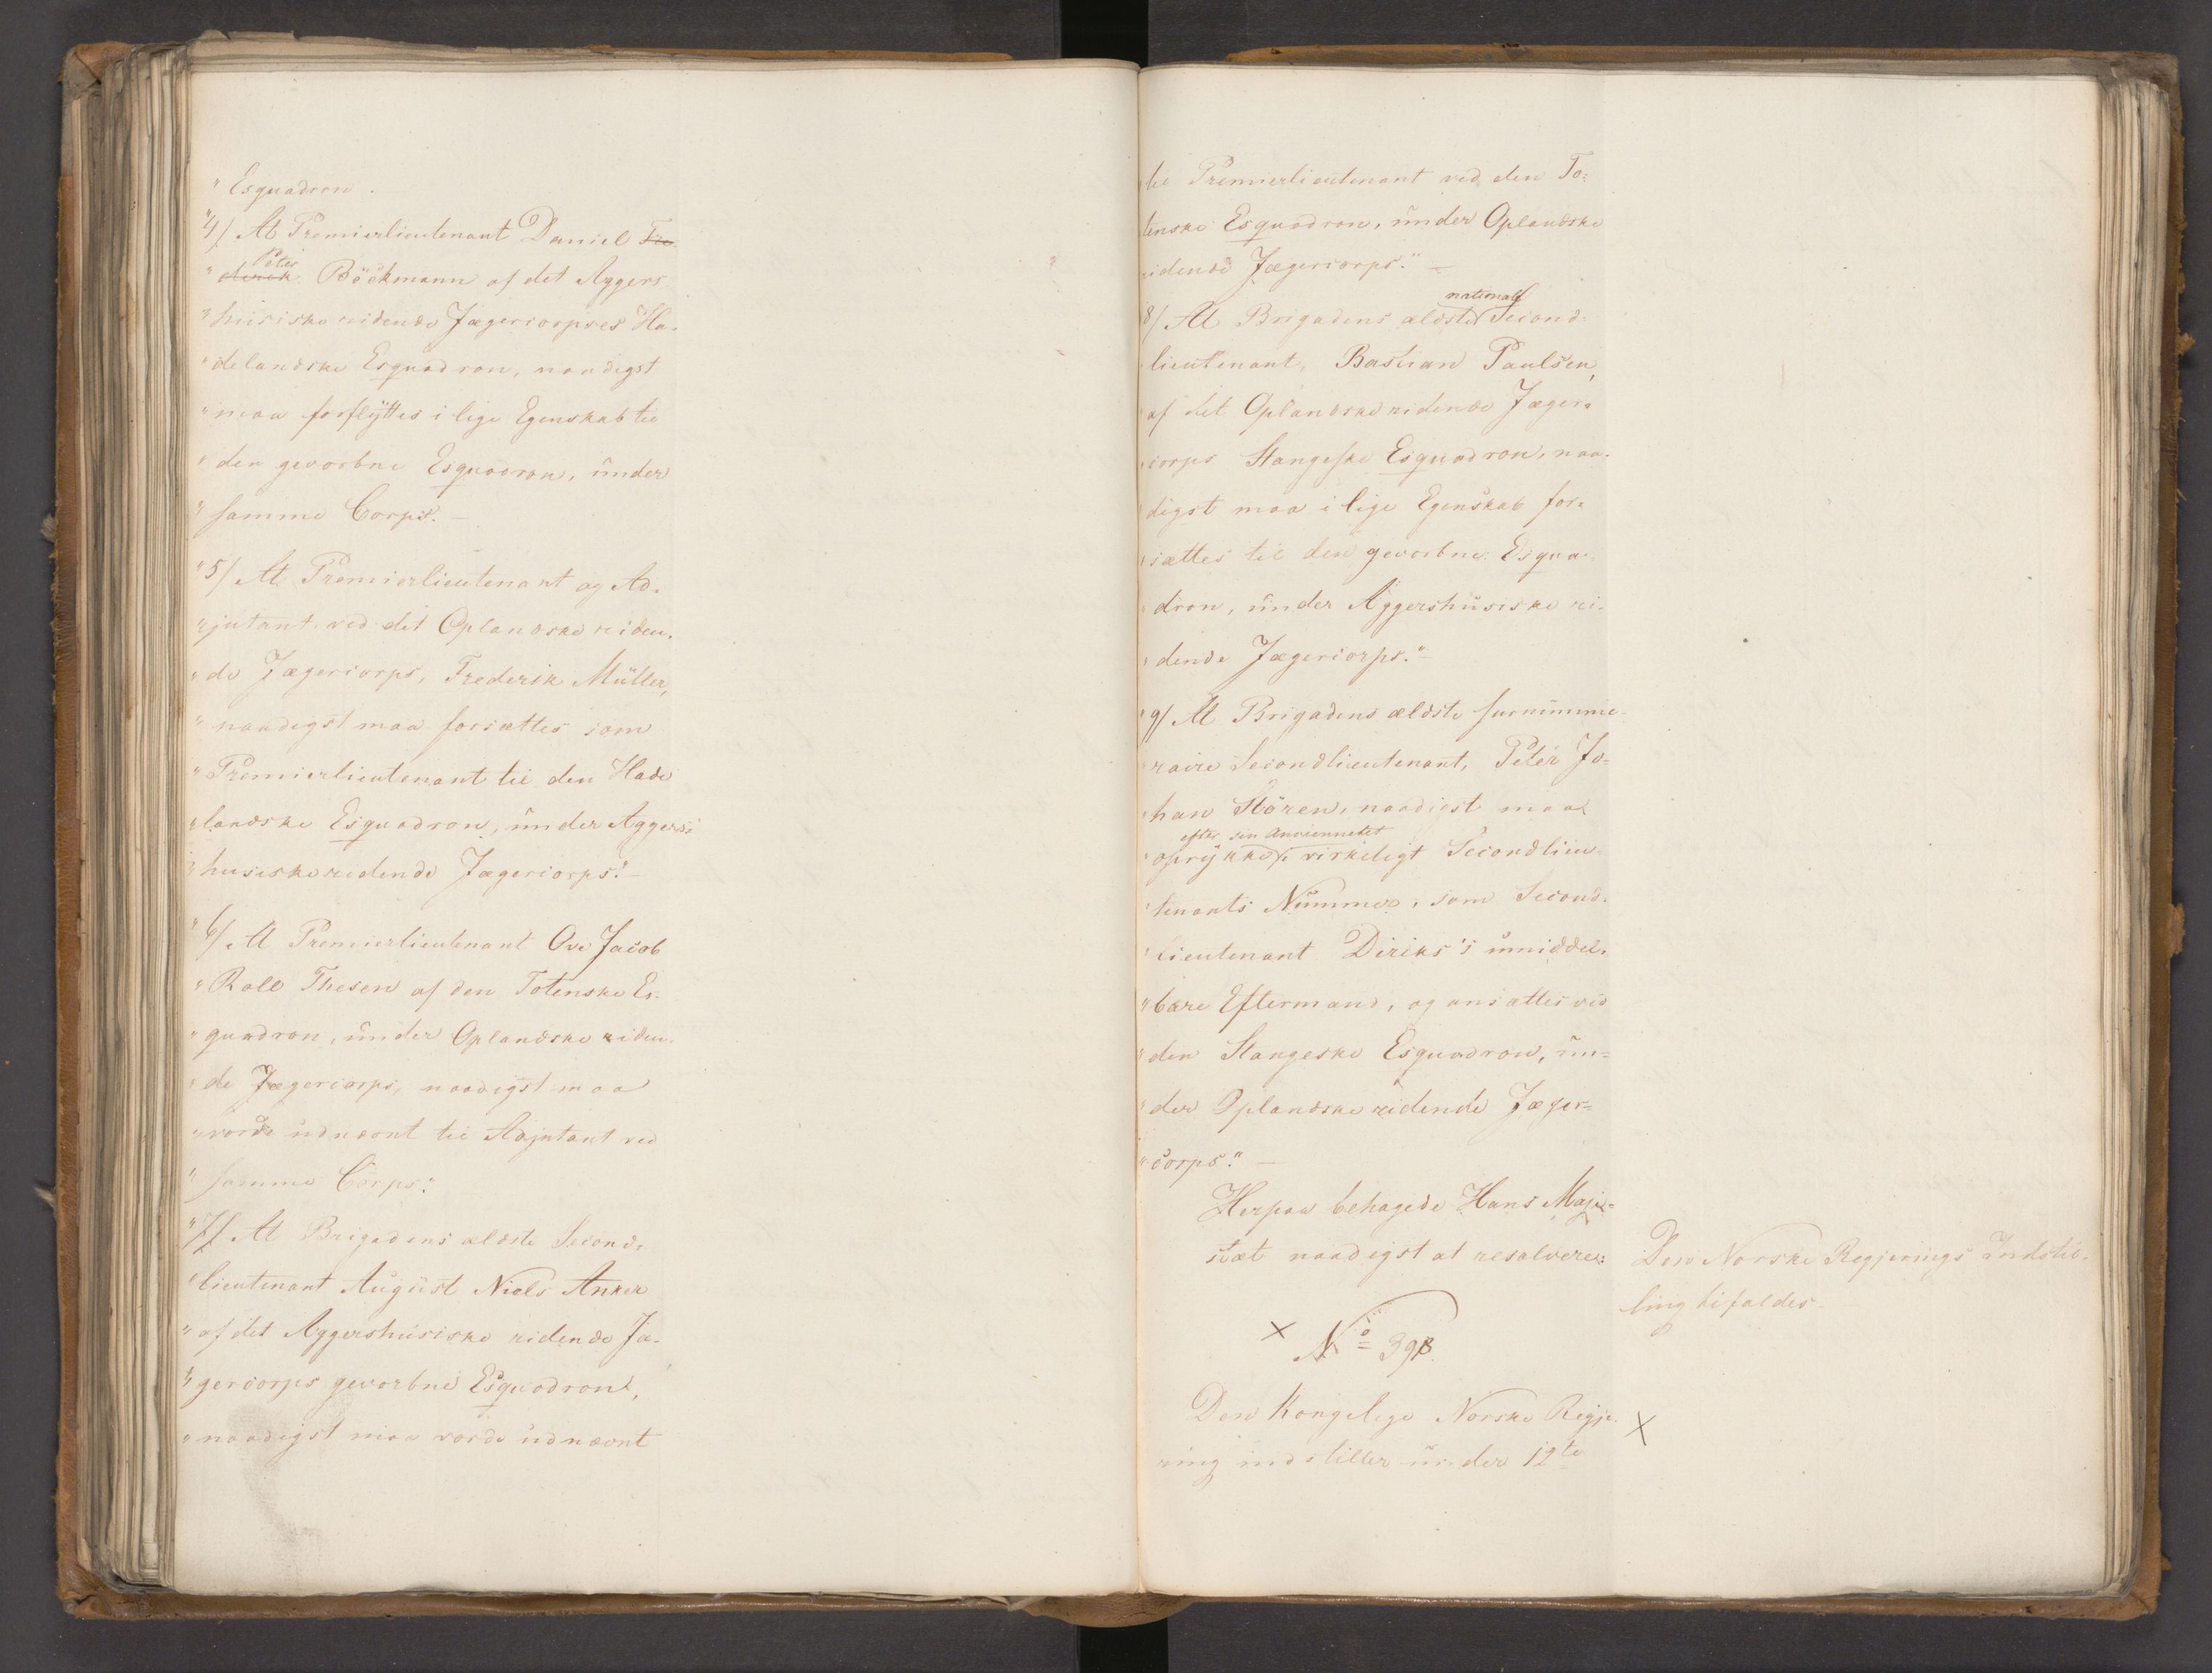 " Esquadron.
"4/ At Premierlieutenant Daniel Fre-
Peter
" derick Böckmann af det Aggers
" huusiske ridende Jægercorpses Ha-
" delandske Esquadron, naadigst
" maa forflyttes i lige Egenskab til
" den gevorbne Esquadron, under
" samme Corps. —
"5/ At Premierlieutenant og Ad-
" jutant ved det Oplandske riden-
" de Jægercorps, Frederik Müller,
" naadigst maa forsættes som
" Premierlieutenant til den Hade
" landske Esquadron, under Aggers-
" husiske ridende Jægercorps." —
"6/ At Premierlieutenant Ove Jacob
" Roll Thesen af den Totenske Es-
" quadron, under Oplandske riden-
" de Jægercorps, naadigst maa
" vorde udnævnt til Adjutant ved
" samme Corps."
"7/ At Brigadens ældste Second-
" lieutenant August Niels Anker
" af det Aggershusiske ridende Jæ-
" gercorps gevorbne Esquadron,
" naadigst maa vorde udnævnt
" til Premierlieutenant ved den To-
" tenske Esquadron, under Oplandske
" ridende Jægercorps." —
nationale
"8/ At Brigadens ældste Second-
" lieutenant, Bastian Paulsen,
" af det Oplandske ridende Jæger-
" corps Stangeske Esquadron, naa-
" digst maa i lige Egenskab for-
" sættes til den gevorbne Esqua-
" dron, under Aggershusiske ri-
" dende Jægercorps." —
"9/ At Brigadens ældste surnumme-
" raire Secondlieutenant, Peter Jo-
" han Stören, naadigst maa
efter sin Anciennetet
" oprykke i virkeligt Secondlieu-
" tenants Nummer, som Second-
" lieutenant Diriks's umiddel-
" bare Eftermand, og ansættes ved
" den Stangeske Esquadron, un-
" der Oplandske ridende Jæger-
" corps." —
Herpaa behagede Hans Maje-
stæt naadigst at resolvere:
Den Norske Regjerings Indstil-
ling bifaldes.
× No 398.
Den Kongelige Norske Regje- ×
ring indstiller under 12te